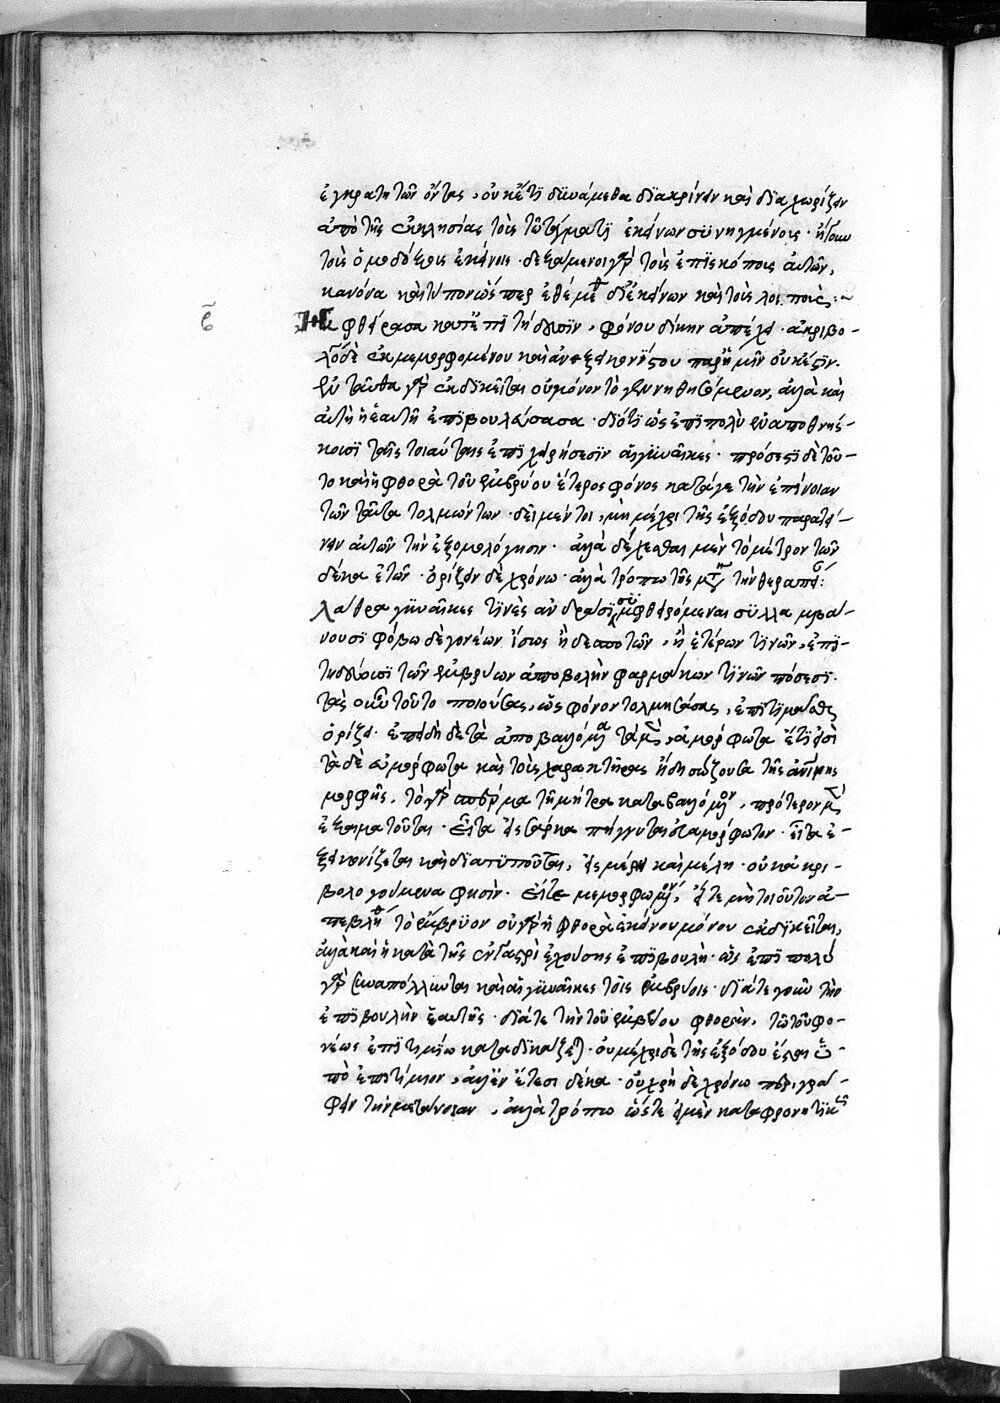 ἐγκρατητῶν ὄντας, οὐκέτι δυνάμεθα διακρίνειν καὶ διαχωρίζειν
ἀπὸ τῆς ἐκκλησίας τοὺς τῶ τάγματι ἐκείνων συνηγμένοις · ἤγουν
τοὺς ὁμοδόξους ἐκείνοις · δεξάμενοι γὰρ τοὺς ἐπισκόπους αὐτῶν,
κανόνα καὶ τύπον ὥσπερ ἐθέμεθα δι' ἐκείνων καὶ τοῖς λοιποῖς :~
β Ἡ φθείρασα κατ' ἐπιτήδευσιν, φόνου δίκην ὑπέχει · ἀκριβο-
λογία δὲ ἐκμεμορφωμένου καὶ ἀνεξεικονίστου παρ' ἡμῖν οὐκ ἔστιν.
ἐνταῦθα γὰρ ἐκδικεῖται οὐ μόνον τὸ γεννηθησόμενον, ἀλλὰ καὶ
αὐτὴ ἡ ἑαυτῇ ἐπιβουλεύσασα · διότι ὡς ἐπιπολὺ ἐναποθνήσ-
κουσι ταῖς τοιαύταις ἐπιχειρήσεσιν αἱ γυναῖκες · πρόσεστι δὲ τού-
τω καὶ ἡ φθορὰ τοῦ ἐμβρύου ἕτερος φόνος κατά γε τὴν ἐπίνοιαν
τῶν ταῦτα τολμώντων · δεῖ μέντοι, μὴ μέχρι τῆς ἐξόδου παρατεί-
νειν αὐτῶν τὴν ἐξομολόγησιν · ἀλλὰ δέχεσθαι μὲν τὸ μέτρον τῶν
δέκα ἐτῶν · ὁρίζειν δὲ χρόνω · ἀλλὰ τρόπω τῆς μετανοίας τὴν θεραπεί :
Λάθρα γυναῖκες τινὲς ἀνδράσι συμφθειρόμεναι συλλαμβά-
νουσι φόβω δὲ γονέων ἴσως ἢ δεσποτῶν, ἢ ἑτέρων τινῶν, ἐπι-
τηδεύουσι τῶν ἐμβρύων ἀποβολὴν φαρμάκων τινῶν πόσεσι.
τὰς οὖν τοῦτο ποιούσας, ὡς φόνον τολμησάσας, ἐπιτιμᾶσθαι
ὁρίζει · ἐπειδὴ δὲ τὰ ἀποβαλλόμενα τὰ μὲν, ἀμόρφωτα ἔτι εἰσὶ
τὰ δὲ ἐμμόρφωτα καὶ τοὺς χαρακτῆρας ἤδη σώζοντα τῆς ἀνθρωπίνης
μορφῆς, τὸ γὰρ σπέρμα τῆ μήτρα καταβαλλόμενον, πρότερον μὲν
ἐξαιματοῦται · εἶτα εἰς σάρκα πήγνυται ἀδιαμόρφωτον · εἶτα ἐ-
ξεικονίζεται καὶ διατυποῦται, εἰς μέρη καὶ μέλη · οὐκ ἀκρι-
βολογούμενα φησίν · εἴτε μεμορφωμένον, εἴτε μὴ τοιοῦτον ἀ-
πεβλήθη τὸ ἔμβρυον οὐ γὰρ ἡ φθορὰ ἐκείνου μόνου ἐκδικεῖται,
ἀλλὰ καὶ ἡ κατὰ τῆς ἐν γαστρὶ ἐχούσης ἐπιβουλή · ὡς ἐπιπολὺ
γὰρ συναπόλλυνται καὶ αἱ γυναῖκες τοῖς ἐμβρύοις · διά τε γοῦν τὴν
ἐπιβουλὴν ἑαυτῆς · διά τε τὴν τοῦ ἐμβρύου φθορὰν, τῶ τοῦ φο-
νέως ἐπιτιμίω καταδικάζεται · οὐ μέχρις δὲ τῆς ἐξόδου ἔσται ὑ-
πὸ ἐπιτίμιον, ἀλλ' ἐν ἔτεσι δέκα · οὐ χρὴ δὲ χρόνω περιγρά-
φειν τὴν μετάνοιαν, ἀλλὰ τρόπω ὥστε εἰ μὲν καταφρονητικῶς